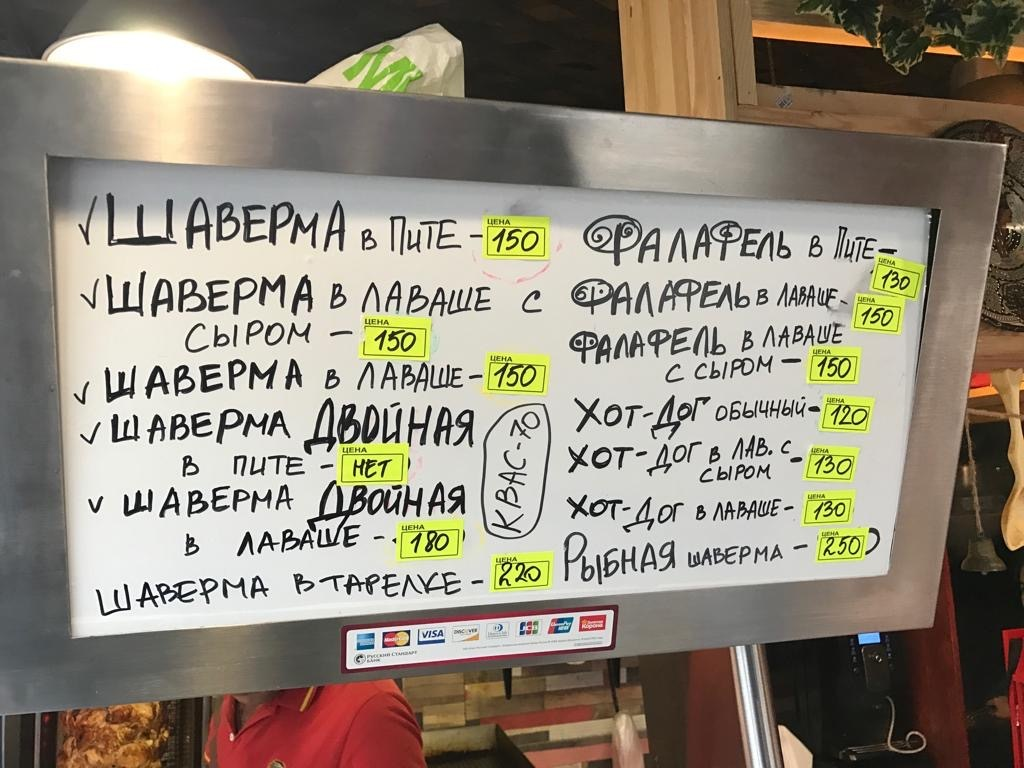 ШАВЕРМА в ПИТЕ - ЦЕНА 150
ШАВЕРМА В ЛАВАШЕ С
СЫРОМ - ЦЕНА 150
ШАВЕРМА В ЛАВАШЕ - ЦЕНА 150
ШАВЕРМА ДВОЙНАЯ
В ПИТЕ - ЦЕНА НЕТ
ШАВЕРМА ДВОЙНАЯ
В ЛАВАШЕ - ЦЕНА 180
ШАВЕРМА В ТАРЕЛКЕ - ЦЕНА 220
КВАС-70
ФАЛАФЕЛЬ в ПИТЕ -
ЦЕНА 130
ФАЛАФЕЛЬ В ЛАВАШЕ -
ЦЕНА 150
ФАЛАФЕЛЬ В ЛАВАШЕ
С СЫРОМ - ЦЕНА 150
ХОТ-ДОГ ОБЫЧНЫЙ - ЦЕНА 120
ХОТ-ДОГ В ЛАВ. С
СЫРОМ - ЦЕНА 130
ХОТ-ДОГ В ЛАВАШЕ - ЦЕНА 130
РЫБНАЯ ШАВЕРМА - ЦЕНА 250
MasterCard VISA DISCOVER JCB UnionPay Золотая Корона
РУССКИЙ СТАНДАРТ
БАНК